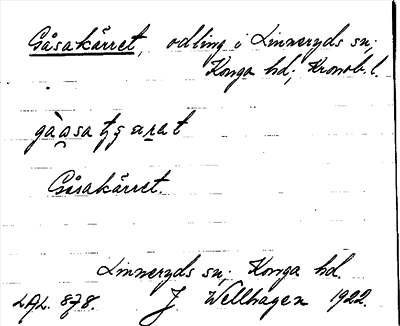 Gåsakärret, odling i Linneryds sn;
Konga hd; Kronob. l.
Gåsakärret.
Linneryds sn; Konga hd.
LAL. 878. J. Wellhagen 1922.